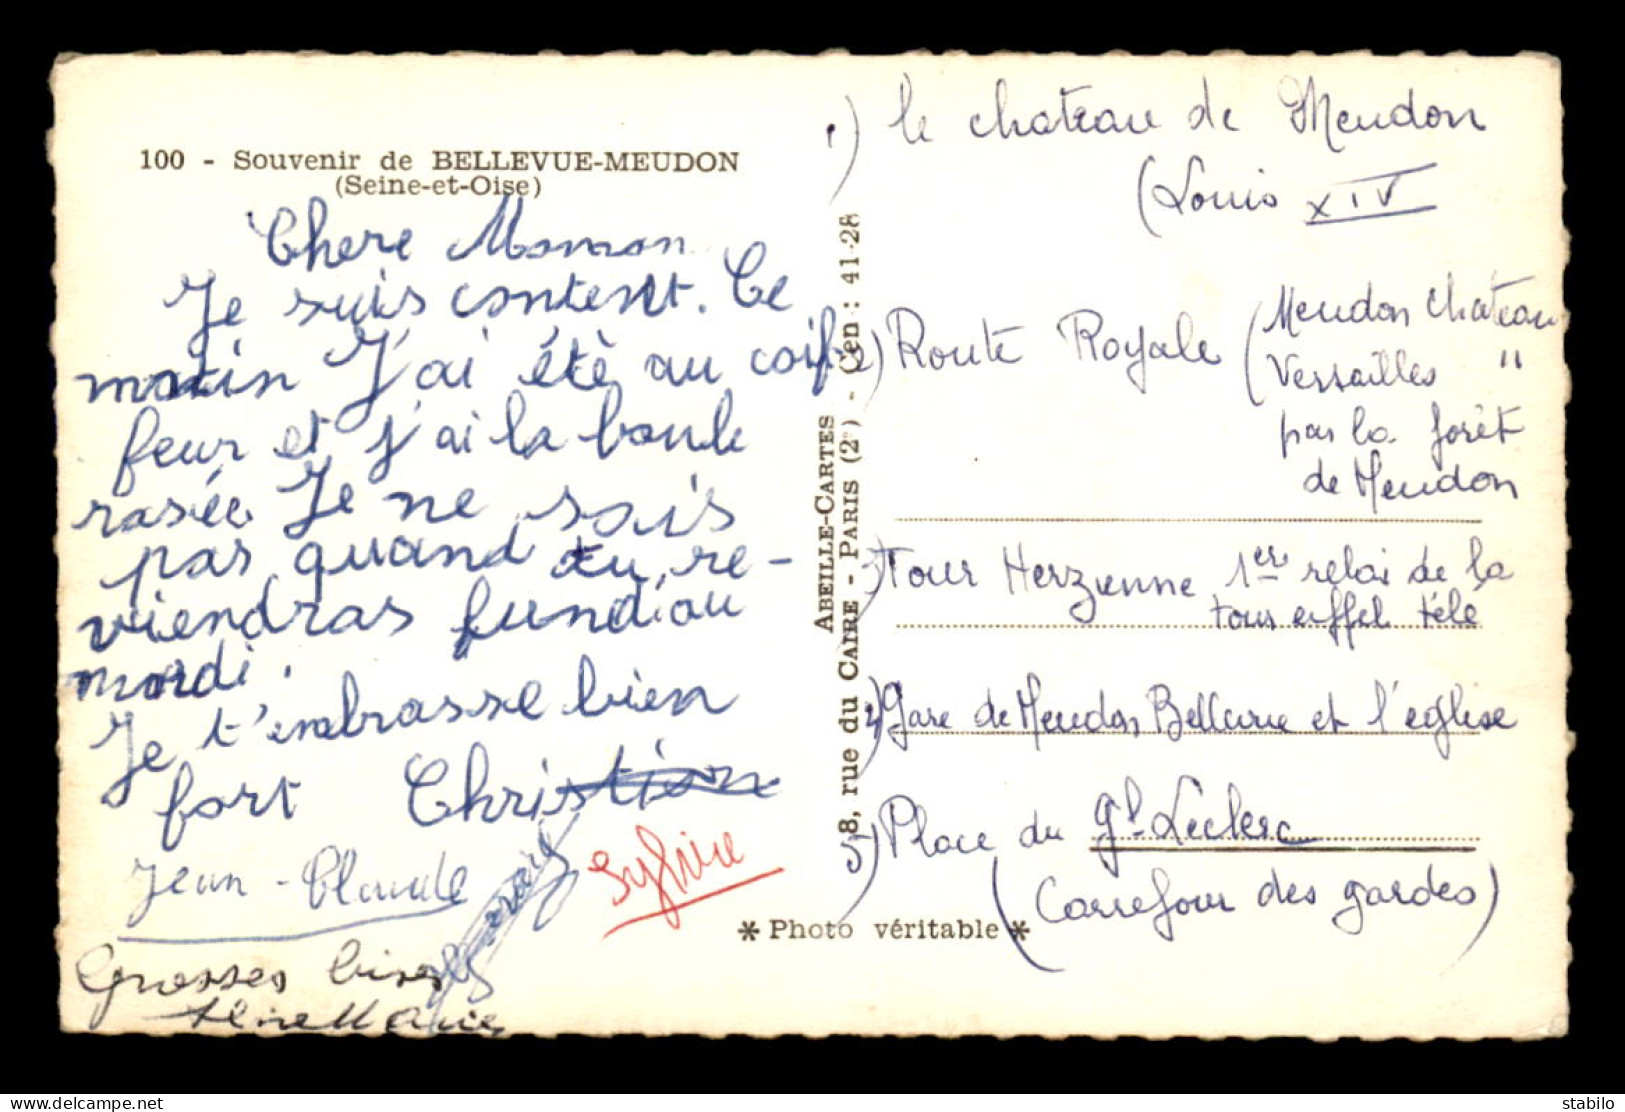 100 - Souvenir de BELLEVUE-MEUDON
(Seine-et-Oise)
Chere Maman
Je suis content. Ce
matin J'ai étè au coif-
feur et j'ai la boule
rasée Je ne sais
pas quand tu re-
viendras lundi ou
mardi.
Je t'embrasse bien
fort Christian
Jean-Claude
Sylvie
Grosses bises
ABEILLE-CARTES
8, rue du CAIRE - PARIS (2e) - Cen : 41-28
* Photo véritable *
1) le chateau de Meudon
(Louis XIV
2) Route Royale (Meudon chateau
Versailles "
par la forêt
de Meudon
3) Tour Herzienne 1er relai de la
tour eiffel télé
4) Gare de Meudon Bellevue et l'église
5) Place du Gl. Leclerc
(Carrefour des gardes)
delcampe.net
stabilo